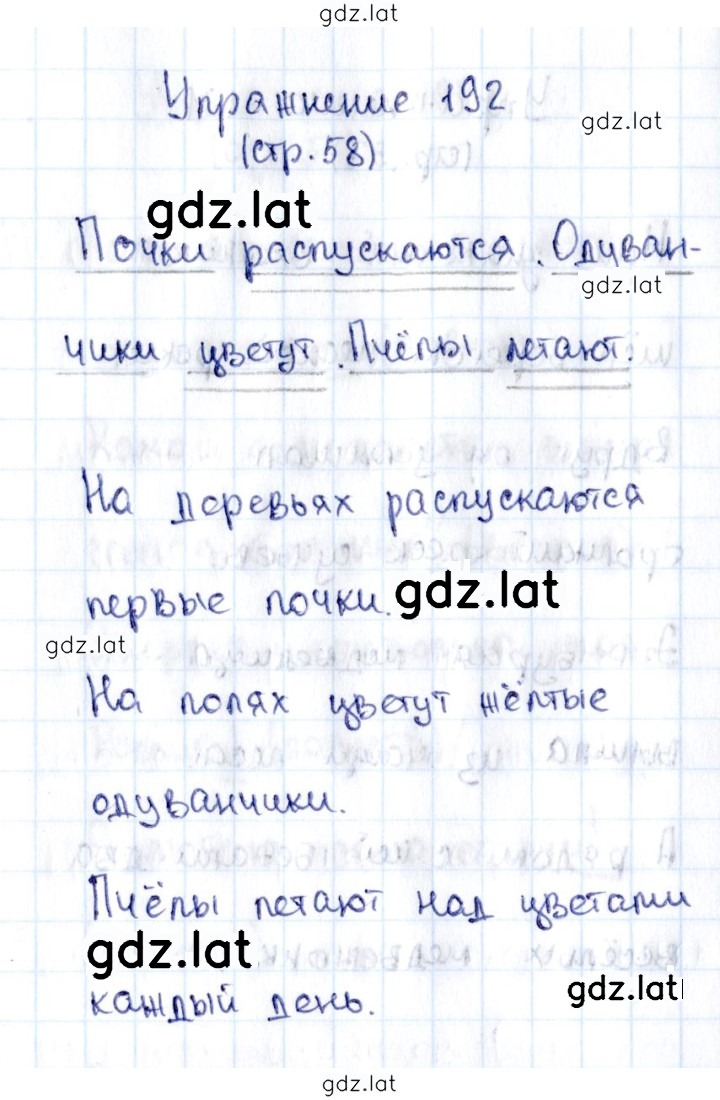 gdz.lat
Упражнение 192
gdz.lat
(стр. 58)
gdz.lat
Почки распускаются. Одуван-
gdz.lat
чики цветут. Пчёлы летают.
На деревьях распускаются
gdz.lat
первые почки.
gdz.lat
На полях цветут жёлтые
одуванчики.
Пчёлы летают над цветами
gdz.lat
каждый день.
gdz.lat
gdz.lat